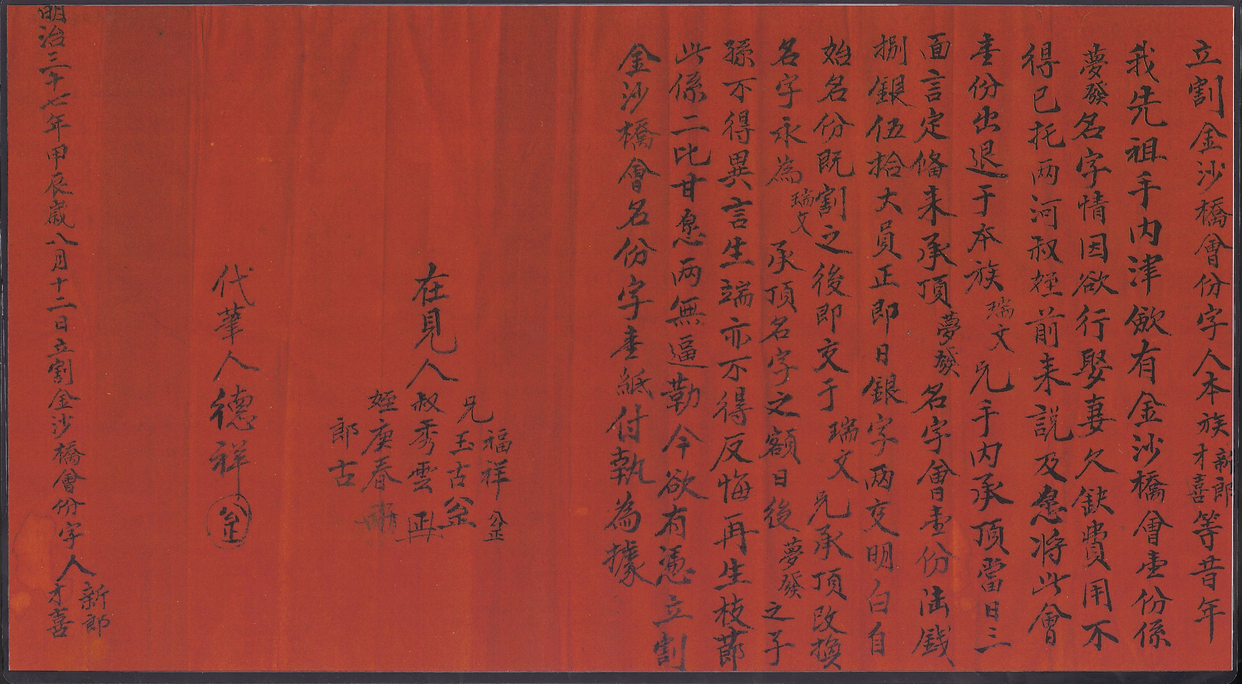 立割金沙橋會份字人本族新郎才喜等昔年
我先祖手内津歛有金沙橋會壹份係
夢發名字情因欲行娶妻欠缺費用不
得已托两河叔姪前来説及愿将此會
壹份出退于本族瑞文兄手内承頂當日三
面言定俻来承頂夢發名字會壹份陆錢
捌銀伍拾大員正即日銀字两交明白自
始名份既割之後即交于瑞文兄承頂改換
名字永為瑞文承頂名字之額日後夢發之子
孫不得異言生端亦不得反悔再生枝莭
此係二比甘愿两無逼勒今欲有憑立割
金沙橋會名份字壹紙付執為據
在見人
兄福祥
玉古
叔秀雲
姪庚春
郎古
代筆人德祥
明治三十七年甲辰歲八月十二日立割金沙橋會份字人新郎才喜